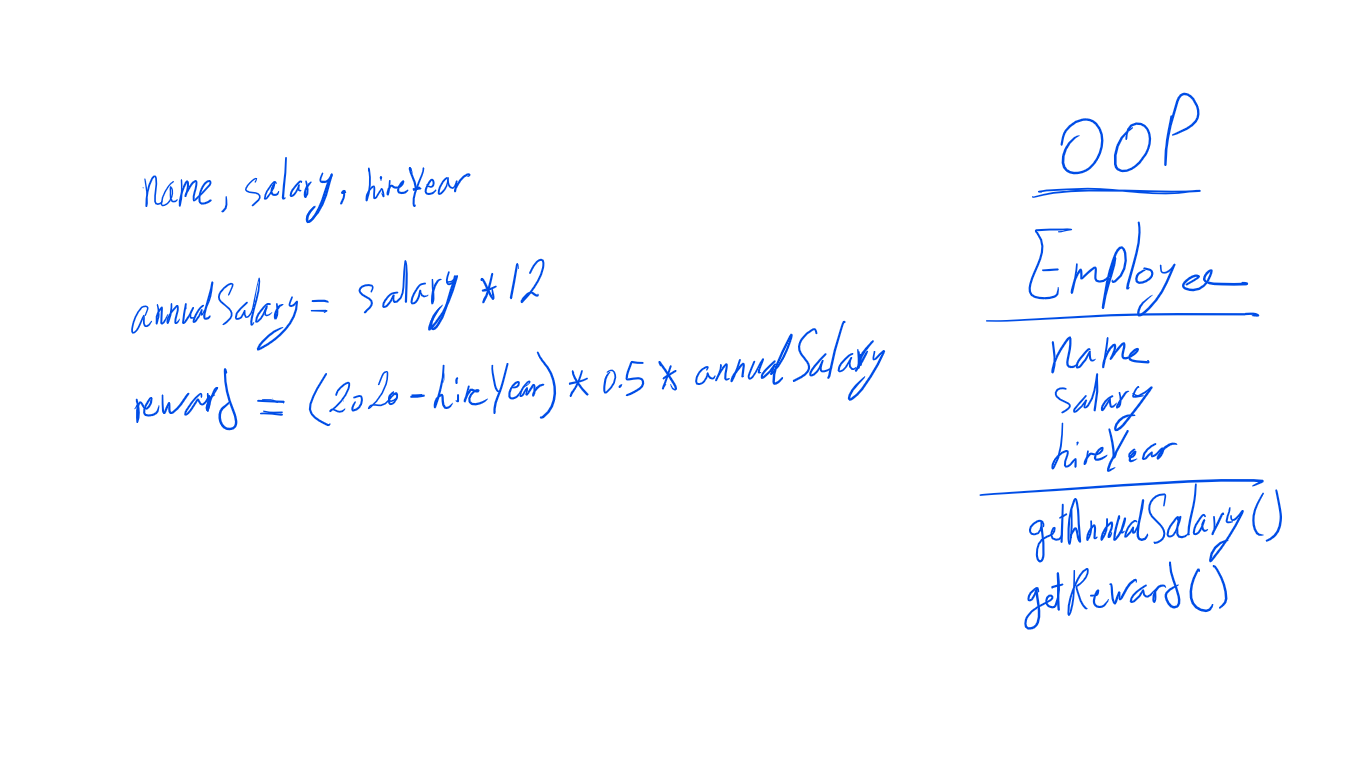 name, salary, hireYear
annualSalary = salary * 12
reward = (2020 - hireYear) * 0.5 * annualSalary
OOP
Employee
name
salary
hireYear
getAnnualSalary()
getReward()